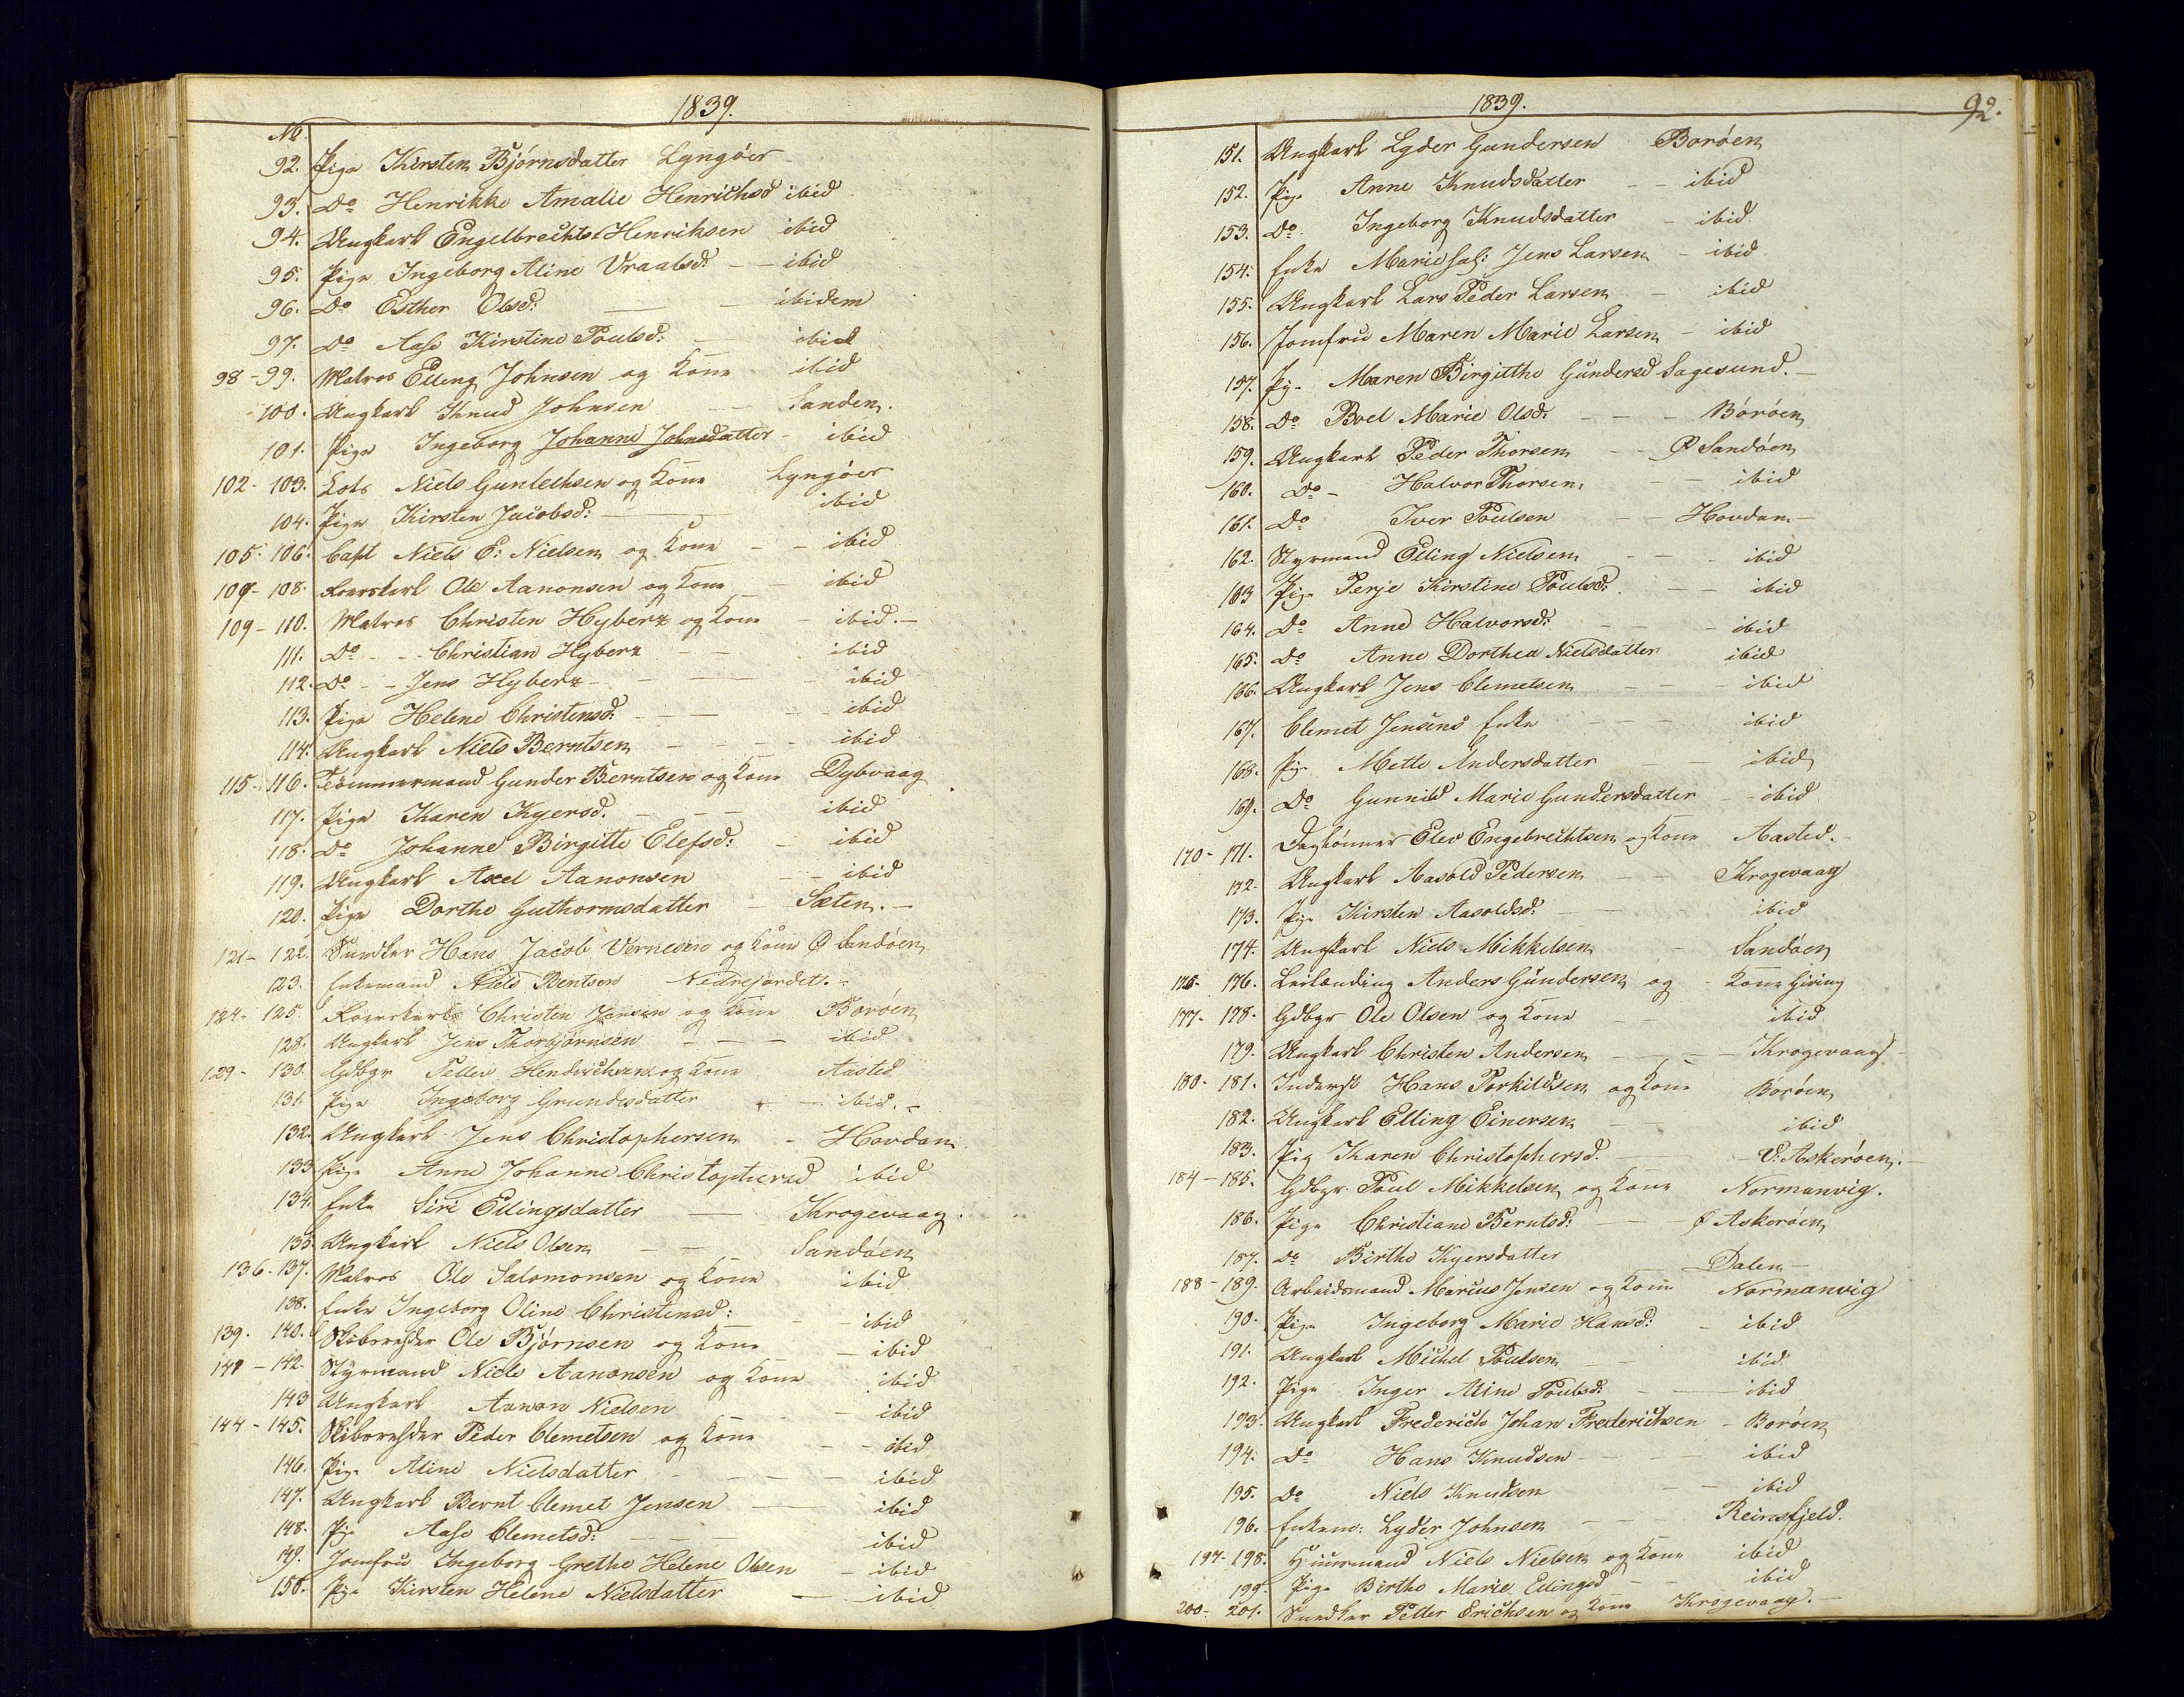 1839.
No.
92. Pige Kirsten Bjørnsdatter Lyngöer
93. Do Henrikke Amalie Henrichsd ibid
94. Ungkarl Engelbrecht Henrichsen ibid
95. Pige Ingeborg Aline Vraalsd: ibid
96. Do Esther Olsd: ibidem
97. Do Aase Kirstine Poulsd: ibid
98-99. Matros Elling Johnsen og Kone ibid
100. Ungkarl Knud Johnsen Sanden.
101. Pige Ingeborg Johanne Johnsdatter - ibid
102-103. Lots Niels Gunlechsen og Kone Lyngöer
104. Pige Kirsten Jacobsd: ibid
105-106. Capt Niels E: Nielsen og Kone - - ibid
109-108. Roerskarl Ole Aanonsen og Kone - ibid
109-110. Matros Christen Hyberz og Kone - ibid.-
111. Do - - Christian Hyberz ibid
112. Do - - Jens Hyberz - ibid
113. Pige Helene Christensd: ibid
114. Ungkarl Niels Berntsen - ibid
115-116. Tømmermand Gunder Berntsen og Kone Dybvaag
117. Pige Karen Kyersd. ibid
118. Do Johanne Birgitte Elefsd: - ibid
119. Ungkarl Axel Aanonsen - ibid
120. Pige Dorthe Guthormsdatter - Sæten.-
121-122. Snedker Hans Jacob Vernesen og Kone Ø Sandöen
123. Enkemand Niels Bentsen Nedrejordet.-
124-125. Roerskarl Christen Jensen og Kone Boröen
128. Ungkarl Jens Thorbjørnsen - - - ibid
129-130. Gdbgr Tellev Hendrichsen og Kone Aasted
131. Pige Ingeborg Grundesdatter - ibid.-
132. Ungkarl Jens Christophersen - Hovdan
133. Pige Anne Johanne Christophersd ibid
134. Enke Siri Ellingsdatter - Krogevaag.
135. Ungkarl Niels Olsen - Sandöen
136-137. Matros Ole Salomonsen og Kone ibid
138. Enke Ingeborg Oline Christensd: - ibid
139-140. Skibsreder Ole Bjørnsen og Kone - ibid
141-142. Styrmand Niels Aanonsen og Kone ibid
143 Ungkarl Aanon Nielsen - ibid
144-145. Skibsreder Peder Clemetsen og Kone - ibid
146. Pige Aline Nielsdatter - ibid
147. Ungkarl Bernt Clemet Jensen - ibid
148. Pige Aase Clemetsd: ibid
149. Jomfru Ingeborg Grethe Helene Olsen - ibid
150. Pige Kirsten Helene Nielsdatter - ibid
1839.
92.
151. Ungkarl Lyder Gundersen Boröen
152. Pige Anne Knudsdatter - - ibid
153. Do Ingeborg Knudsdatter - ibid.
154. Enke Marie sal: Jens Larsen - ibid
155. Ungkarl Lars Peder Larsen - ibid
156. Jomfru Maren Marie Larsen - ibid
157. Pige Maren Birgitthe Gundersd Sagesund.-
158. Do Boel Marie Olsd: - - - Boröen
159. Ungkarl Peder Thorsen - - Ø Sandöen
160. Do - Halvor Thorsen - - ibid
161. Do Iver Poulsen - - Hovdan -
162. Styrmand Elling Nielsen - - - ibid
163 Pige Terje Kirstine Poulsd: - - ibid
164. Do Anne Halvorsd: - ibid
165. Do Anne Dorthea Nielsdatter ibid
166. Ungkarl Jens Clemetsen - - - ibid
167. Clemet Jensens Enke - - - ibid
168. Pige Mette Andersdatter - - ibid
169. Do Gunnild Marie Gundersdatter - ibid
170-171. Daglønner Elev Engebrechtsen og Kone Aasted.-
172. Ungkarl Aasold Pedersen - - Krogevaag
173. Pige Kirsten Aasoldsd: - ibid
174. Ungkarl Niels Mikkelsen - Sandöen
175-176. Leilænding Anders Gundersen og - Kone Giving
177-178. Gdbgr Ole Olsen og Kone - ibid
179. Ungkarl Christen Andersen - Krogevaag -
180-181. Inderst Hans Torkildsen og Kone Boröen
182. Ungkarl Elling Einersen - ibid
183. Pige Karen Christophersd. - V: Askeröen.-
184-185. Gdbgr Poul Mikkelsen og Kone Normanvig.
186. Pige Christiane Berntsd: - Ø Askeröen
187. Do Birthe Kyersdatter - Dalen -
188-189. Arbeidsmand Marius Jensen og Kone Normanvig
190. Pige Ingeborg Marie Hansd: - ibid
191. Ungkarl Michel Poulsen - ibid
192. Pige Inger Aline Poulsd: - - ibid
193. Ungkarl Frederich Johan Frederichsen - Boröen
194. Do Hans Knudsen - - - ibid
195. Do Niels Knudsen - - ibid
196. Enkem: Lyder Johnsen - - Reinsfjeld.
197-198. Huusmand Niels Nielsen og Kone ibid
199. Pige Birthe Marie Ellingsd - - ibid
200-201. Snedker Peter Erichsen og Kone Krogevaag.-